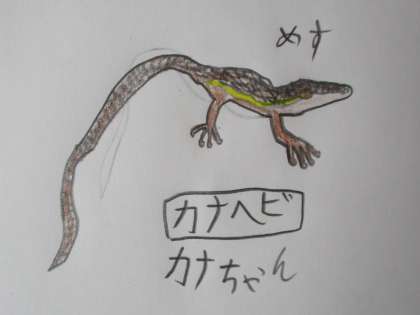 めす
カナヘビ
カナちゃん